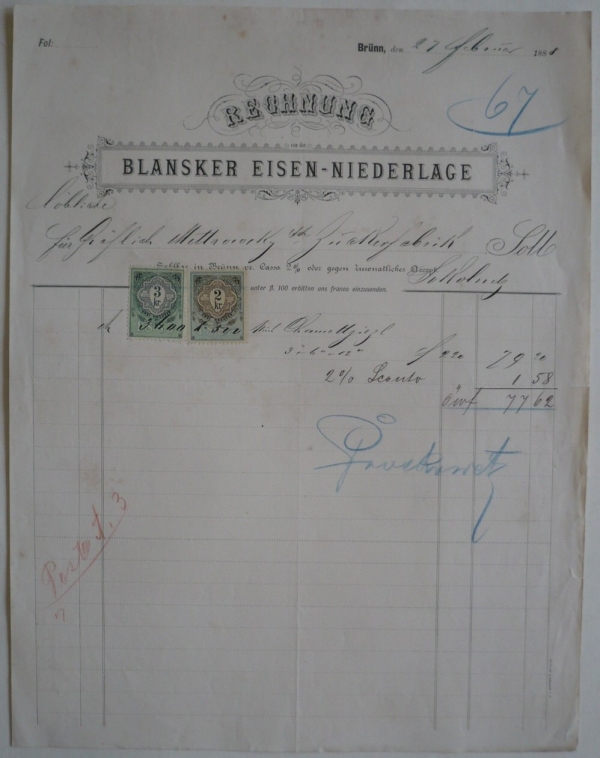 Fol:
Brünn, den 27 Februar 1881
67
RECHNUNG
von der
BLANSKER EISEN-NIEDERLAGE
Löbliche
für Gräflich Mittrowsky'sche Zuckerfabrik Soll
Zahlbar in Brünn per Cassa 2% oder gegen 3monatliches Accept
Sokolnitz
unter fl. 100 erbitten uns franco einzusenden.
3 kr.
2 kr.
3600 K. 360 Stück Chamottziegel
f 220 79 20
2% Sconto 1 58
öwf 77 62
Posto 1. 3